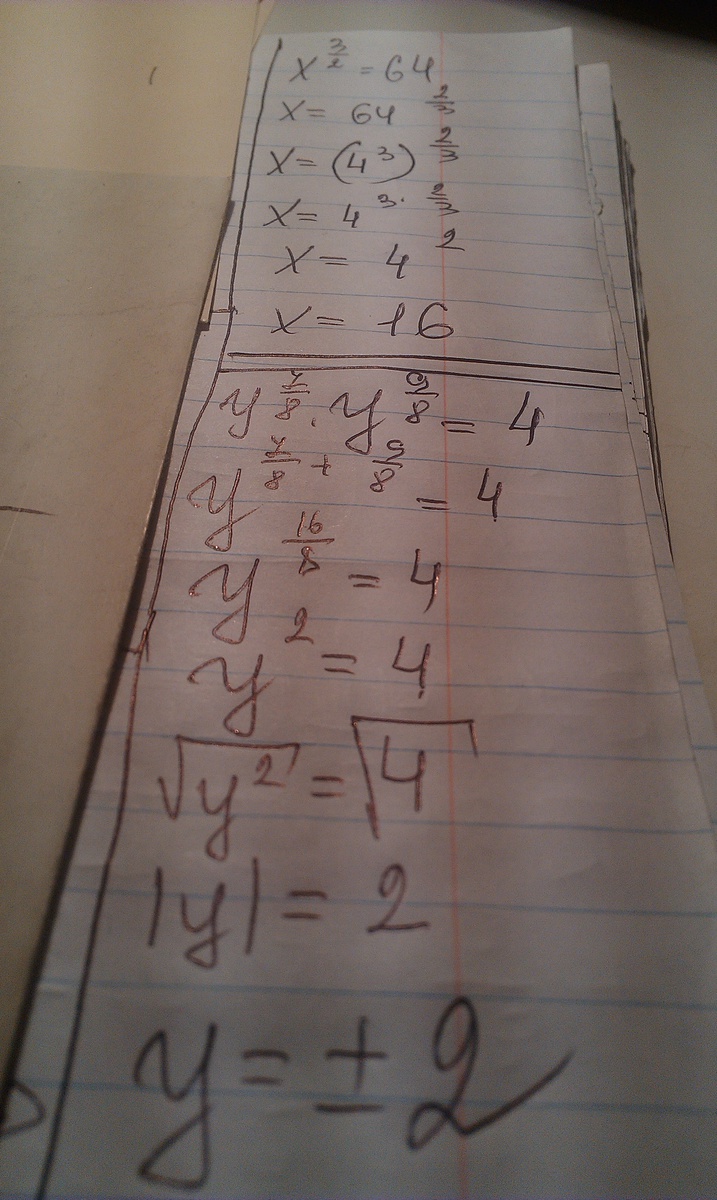 x^(3/2) = 64
x = 64^(2/3)
x = (4^3)^(2/3)
x = 4^(3·2/3)
x = 4^2
x = 16
y^(7/8) · y^(9/8) = 4
y^(7/8 + 9/8) = 4
y^(16/8) = 4
y^2 = 4
√y^2 = √4
|y| = 2
y = ±2